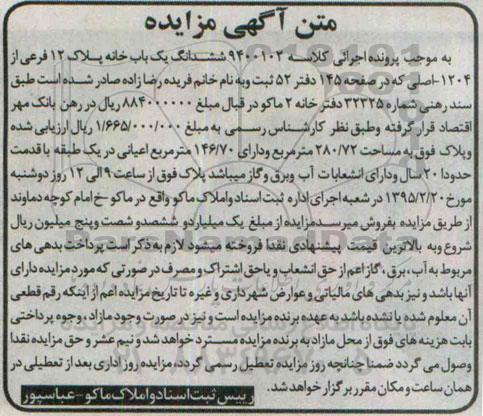 متن آگهی مزایده
به موجب پرونده اجرائی کلاسه ۹۴۰۰۱۰۲ ششدانگ یک باب خانه پلاک ۱۲ فرعی از
۱۲۰۴-اصلی که در صفحه ۱۴۵ دفتر ۵۲ ثبت و به نام خانم فریده رضا زاده صادر شده است طبق
سند رهنی شماره ۳۲۳۲۵ دفتر خانه ۲ ماکو در قبال مبلغ ۸۸۴۰۰۰۰۰۰ ریال در رهن بانک مهر
اقتصاد قرار گرفته و طبق نظر کارشناس رسمی به مبلغ ۱/۶۶۵/۰۰۰/۰۰۰ ریال ارزیابی شده
و پلاک فوق به مساحت ۲۸۰/۷۲ متر مربع و دارای ۱۴۶/۷۰ متر مربع اعیانی در یک طبقه با قدمت
حدودا ۲۰ سال و دارای انشعابات آب و برق و گاز میباشد پلاک فوق از ساعت ۹ الی ۱۲ روز دوشنبه
مورخ ۱۳۹۵/۲/۲۰ در شعبه اجرای اداره ثبت اسناد و املاک ماکو واقع در ماکو-خ امام کوچه دماوند
از طریق مزایده بفروش میرسد مزایده از مبلغ یک میلیارد و ششصد و شصت و پنج میلیون ریال
شروع و به بالاترین قیمت پیشنهادی نقدا فروخته میشود لازم به ذکر است پرداخت بدهی های
مربوط به آب، برق، گاز اعم از حق انشعاب و یا حق اشتراک و مصرف در صورتی که مورد مزایده دارای
آنها باشد و نیز بدهی های مالیاتی و عوارض شهرداری و غیره تا تاریخ مزایده اعم از اینکه رقم قطعی
آن معلوم شده یا نشده باشد به عهده برنده مزایده است و نیز در صورت وجود مازاد، وجوه پرداختی
بابت هزینه های فوق از محل مازاد به برنده مزایده مسترد خواهد شد و نیم عشر و حق مزایده نقدا
وصول می گردد ضمنا چنانچه روز مزایده تعطیل رسمی گردد، مزایده روز اداری بعد از تعطیلی در
همان ساعت و مکان مقرر برگزار خواهد شد.
رییس ثبت اسناد و املاک ماکو-عباسپور